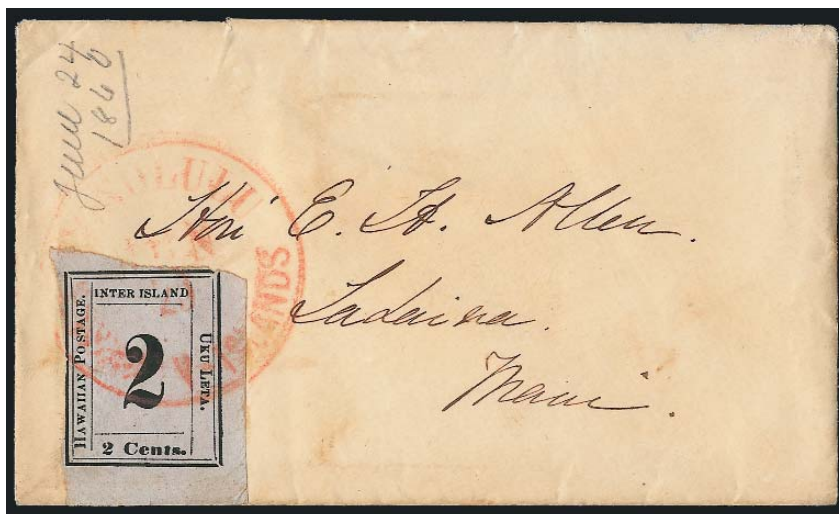 June 24
1860
HONOLULU
ISLANDS
Hon E. H. Allen.
Lahaina.
Maui.
INTER ISLAND
HAWAIIAN POSTAGE.
2
UKU LETA.
2 Cents.